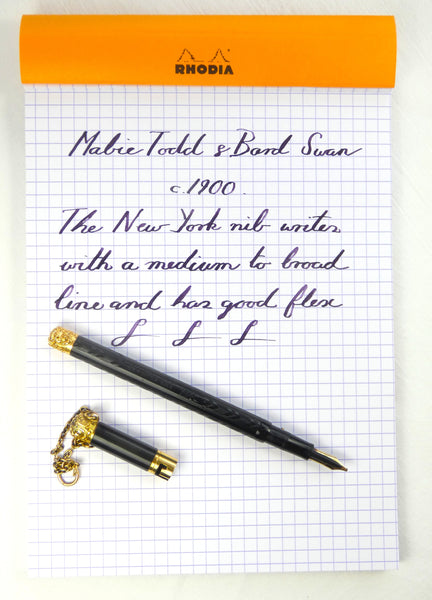 RHODIA
Mabie Todd & Bard Swan
c.1900.
The New York nib writes
with a medium to broad
line and has good flex